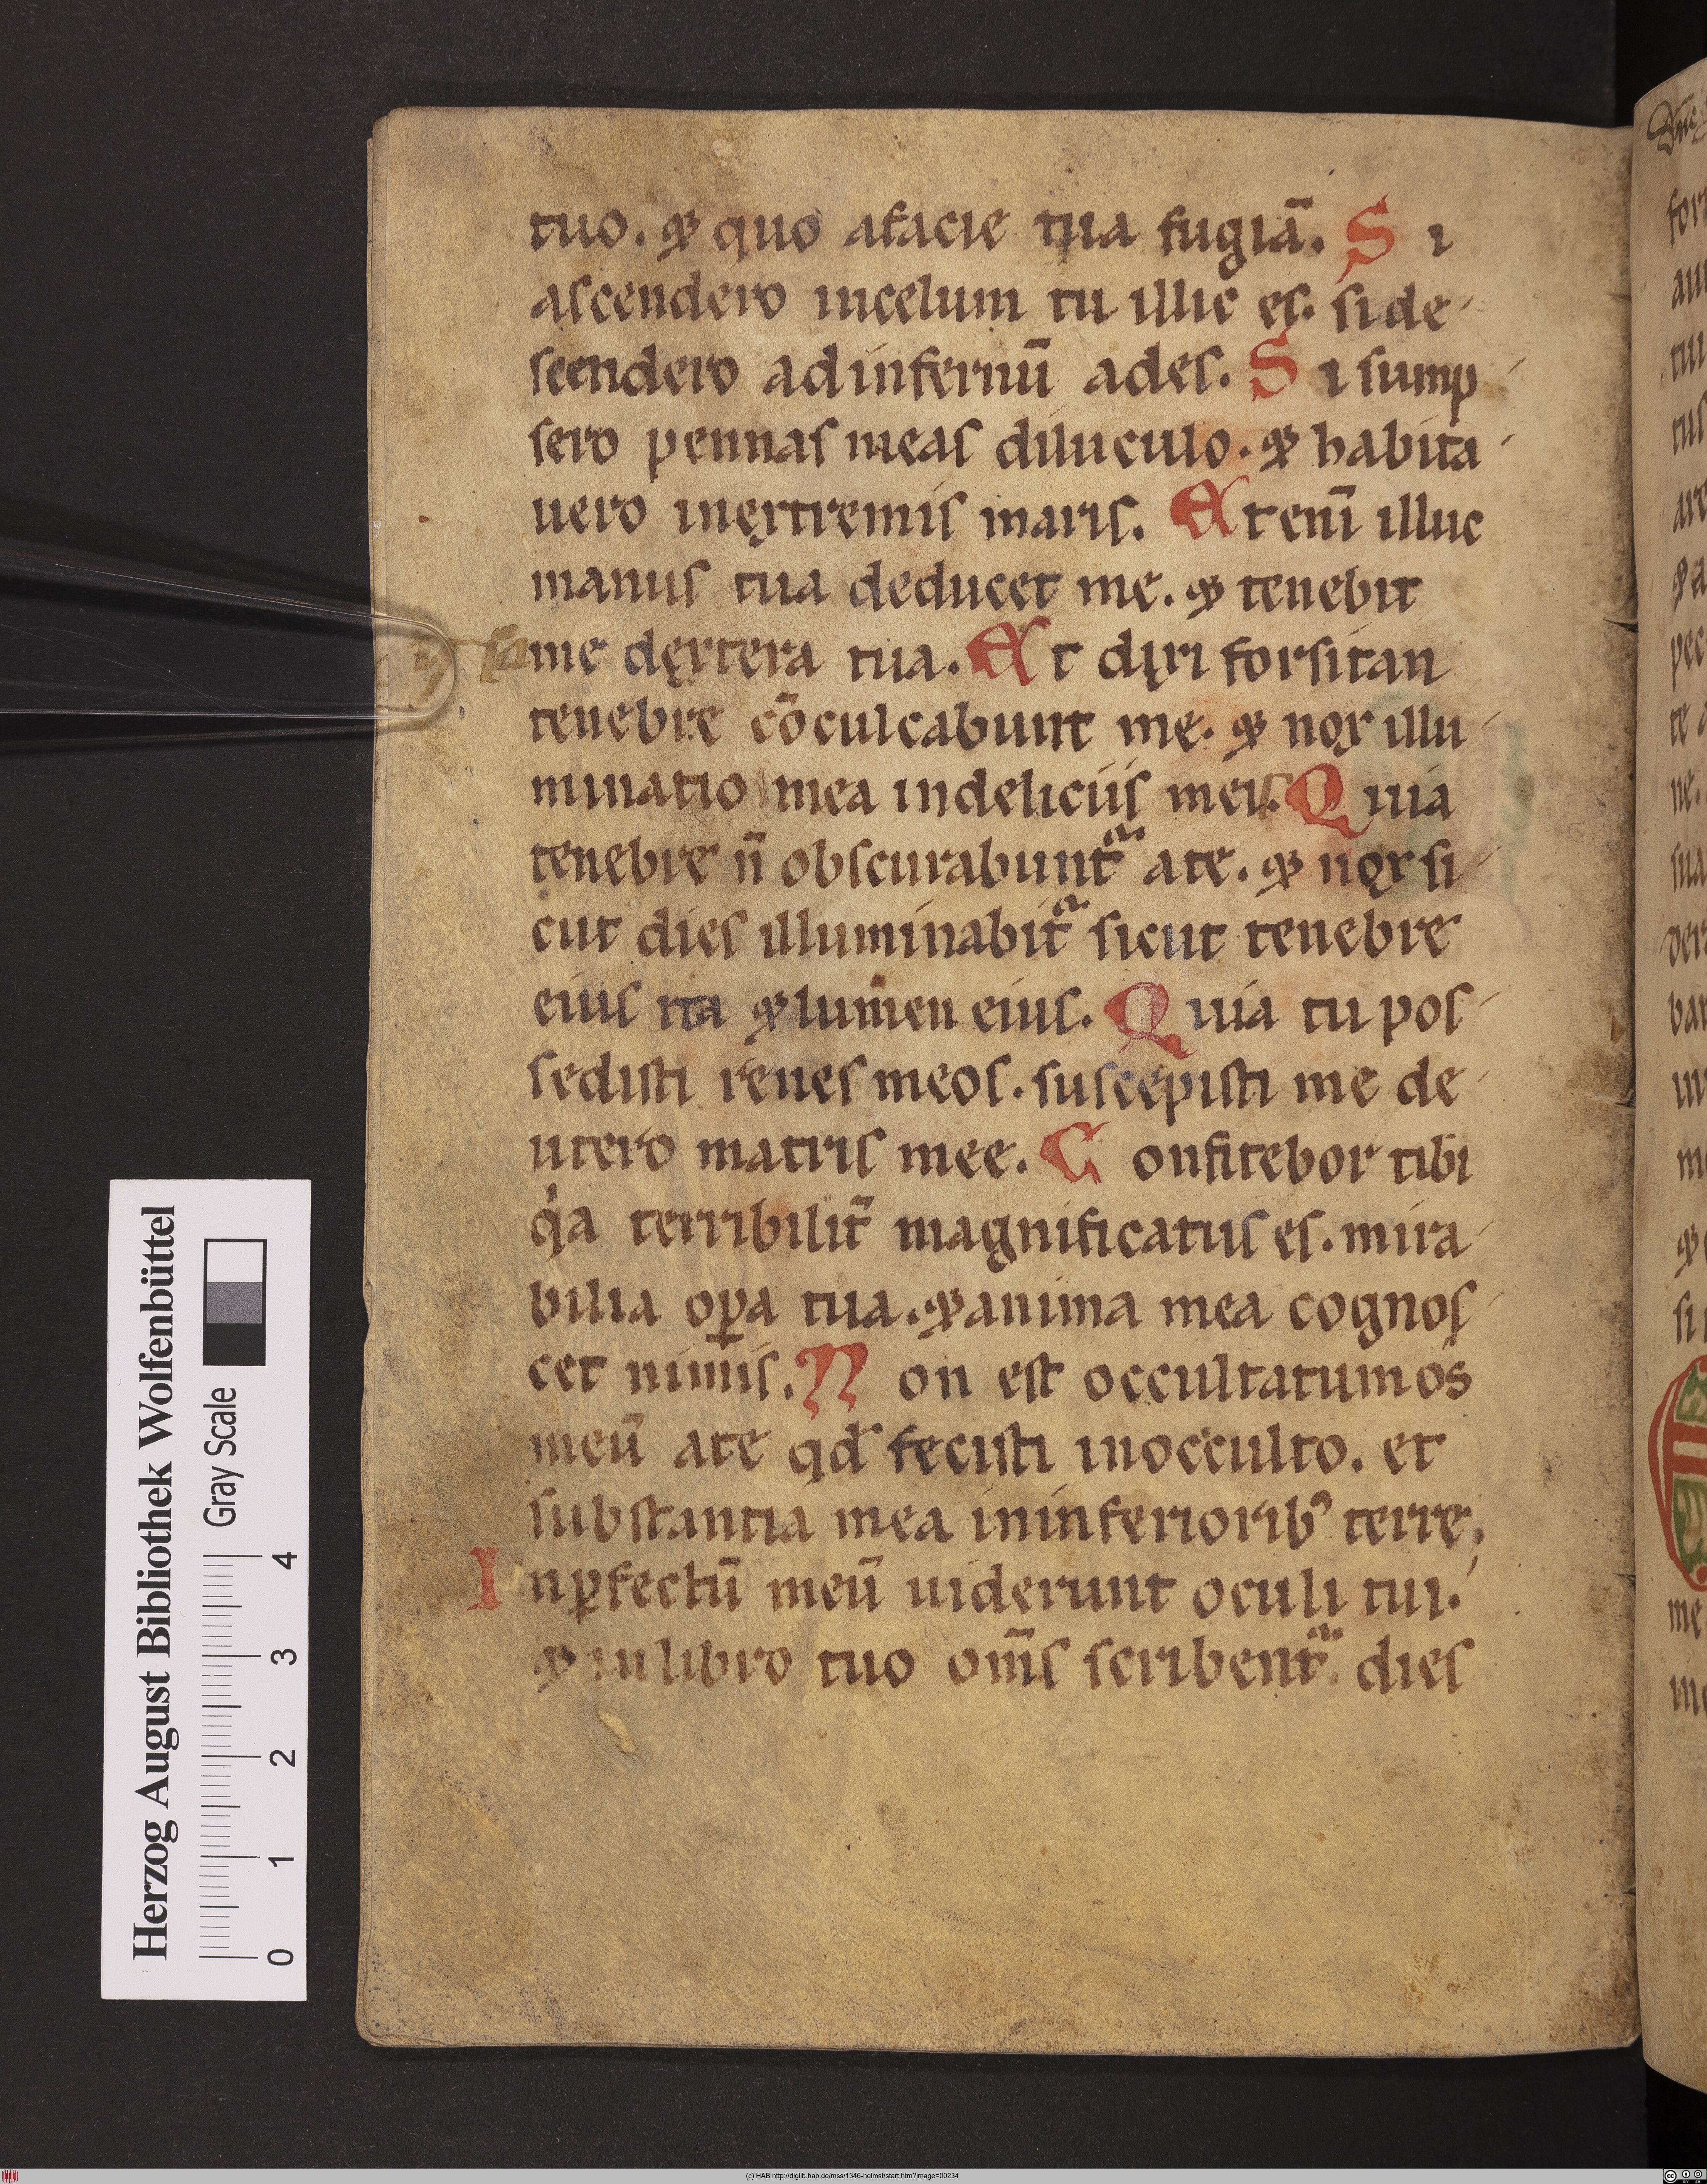 tuo. ⁊ quo afacie tua fugiā. S i
ascendero incelum tu illic es. si de
scendero ad infernū ades. S i sump
sero pennas meas diluculo. ⁊ habita
uero inextremis maris. Et eni̅ illuc
manus tua deducet me. ⁊ tenebit
me dextera tua. Et dixi forsitan
tenebre cōculcabunt me. ⁊ nox illu
minatio mea indeliciis meis. Quia
tenebre n̄ obscurabunt᷑ ate. ⁊ nox si
cut dies illuminabit᷑ sicut tenebre
eius ita ⁊ lumen eius. Quia tu pos
sedisti renes meos. suscepisti me de
utero matris mee. Confitebor tibi
qͥa terribilit̄ magnificatus es. mira
bilia oꝑa tua. ⁊ anima mea cognos
cet nimis. Non est occultatum os
meū ate qd̄ fecisti inocculto. et
substantia mea ininferioribꝰ terre.
Inꝑfectū meū uiderunt oculi tui.
⁊ in libro tuo om̄s scribent᷑ dies
Herzog August Bibliothek Wolfenbüttel
Gray Scale
0 1 2 3 4
(c) HAB http://diglib.hab.de/mss/1346-helmst/start.htm?image=00234